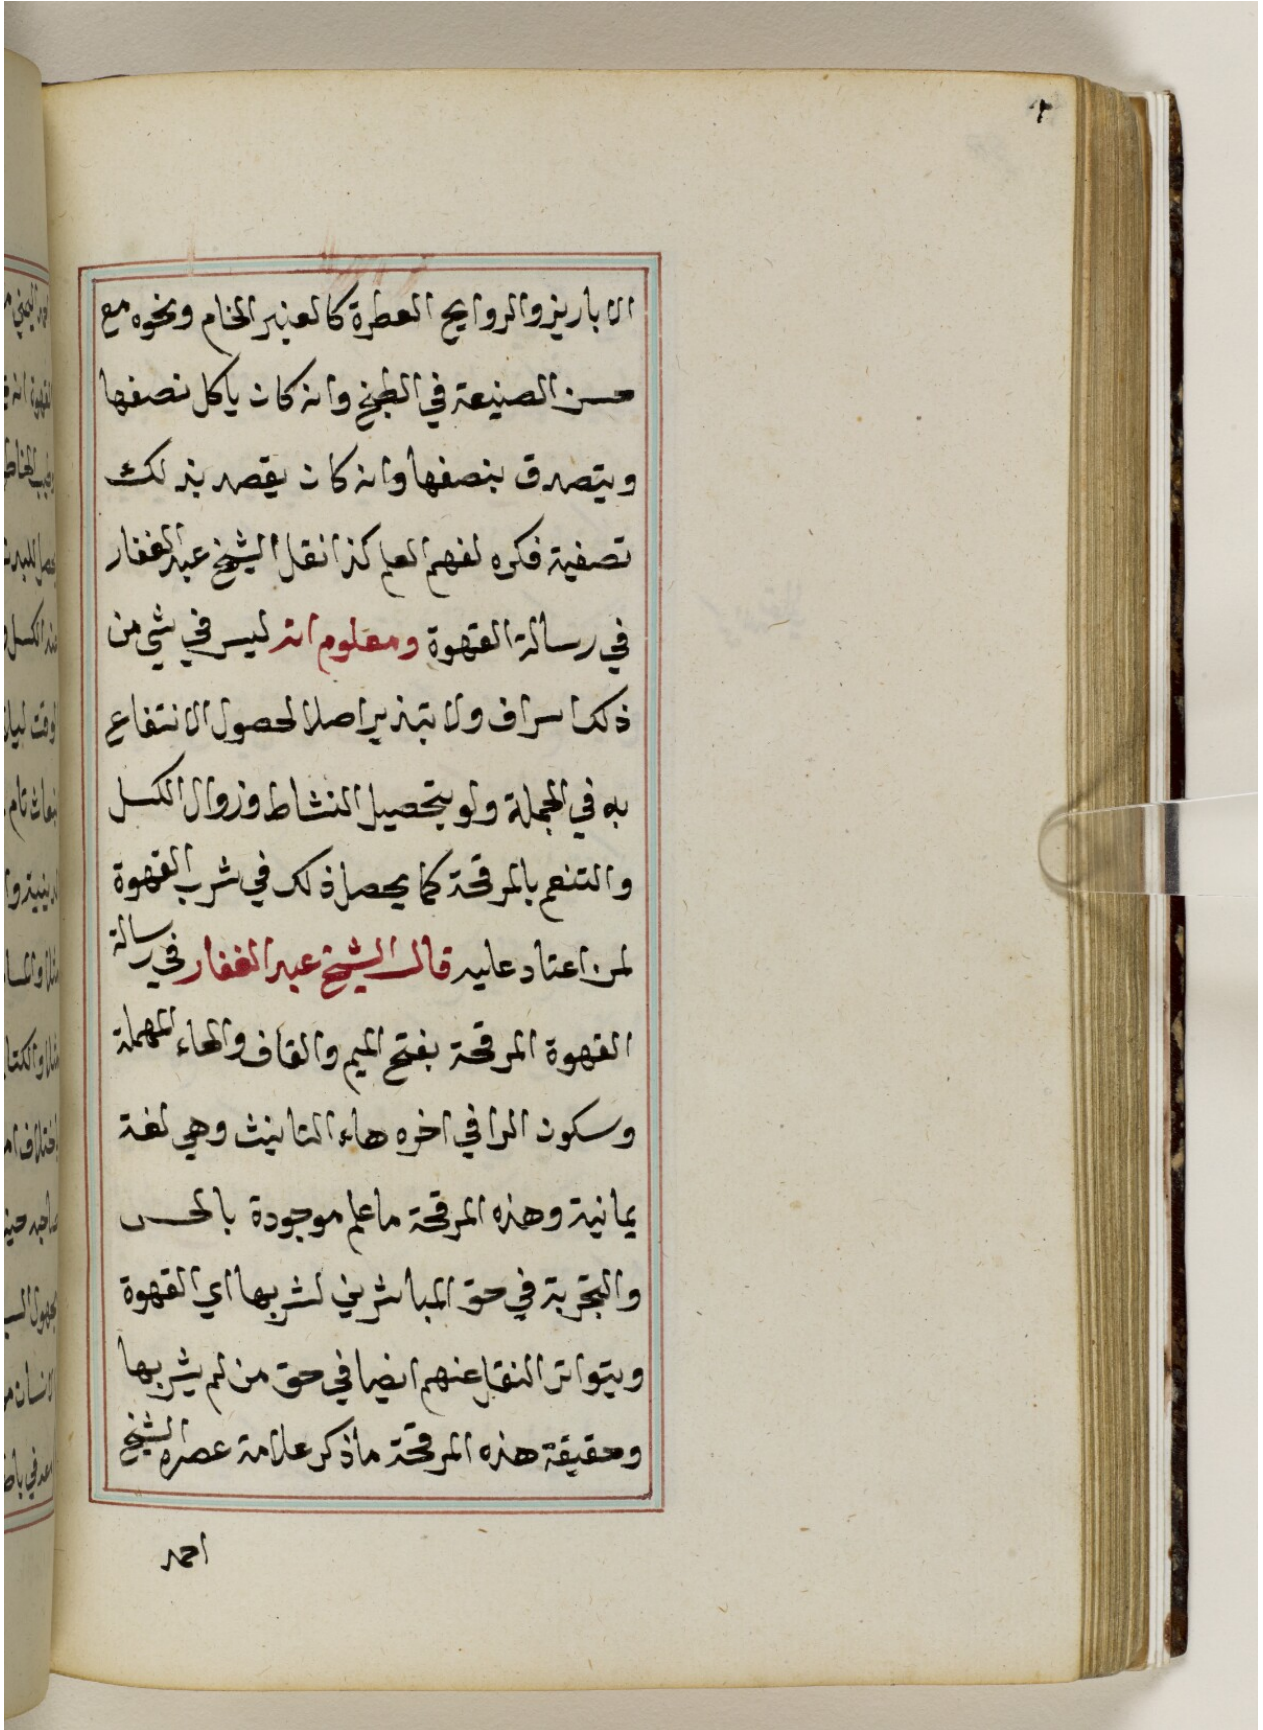 ٢
الابازيز والروايح العطرة كالعنبر الخام ونحوه مع
حسن الصنيعة في الطبخ وانه كان ياكل نصفها
ويتصدق بنصفها وانه كان يقصد بذلك
تصفية فكره لفهم العلم كذا نقل الشيخ عبد الغفار
في رسالة القهوة ومعلوم انه ليس في شي من
ذلك اسراف ولا تبذير اصلا لحصول الانتفاع
به في الجملة ولو بتحصيل النشاط وزوال الكسل
والتنعم بالمرقحة كما يحصل ذلك في شرب القهوة
لمن اعتاد عليه قال الشيخ عبد الغفار في رسالة
القهوة المرقحة بفتح الميم والقاف والحاء المهملة
وسكون الرا في اخره هاء التانيث وهي لغة
يمانية وهذه المرقحة ما علم موجودة بالحس
والتجربة في حق المباشرين لشربها اي القهوة
وبتواتر النقل عنهم ايضا في حق من لم يشربها
وحقيقة هذه المرقحة ما ذكر علامة عصره الشيخ
احمد